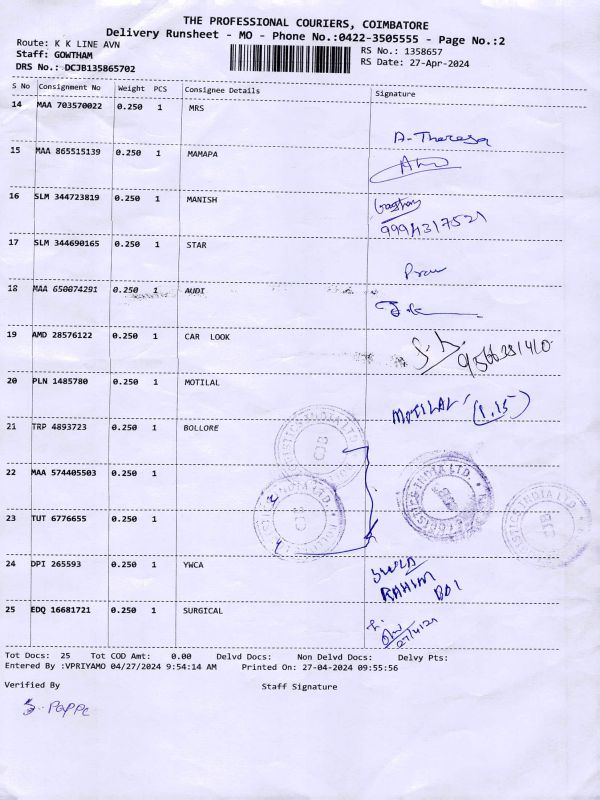 THE PROFESSIONAL COURIERS, COIMBATORE
Delivery Runsheet - MO - Phone No.:0422-3505555 - Page No.:2
Route: K K LINE AVN
Staff: GOWTHAM
DRS No.: DCJB135865702
RS No.: 1358657
RS Date: 27-Apr-2024
S No Consignment No Weight PCS Consignee Details Signature
14 MAA 703570022 0.250 1 MRS
A-Theresa
15 MAA 865515139 0.250 1 MAMAPA
16 SLM 344723819 0.250 1 MANISH
9994317521
17 SLM 344690165 0.250 1 STAR
18 MAA 650074291 0.250 1 AUDI
19 AMD 28576122 0.250 1 CAR LOOK
20 PLN 1485780 0.250 1 MOTILAL
MOTILAL (1.15)
21 TRP 4893723 0.250 1 BOLLORE
22 MAA 574405503 0.250 1
23 TUT 6776655 0.250 1
24 DPI 265593 0.250 1 YWCA
RAHIM
25 EDQ 16681721 0.250 1 SURGICAL
Tot Docs: 25 Tot COD Amt: 0.00 Delvd Docs: Non Delvd Docs: Delvy Pts:
Entered By :VPRIYAMO 04/27/2024 9:54:14 AM Printed On: 27-04-2024 09:55:56
Verified By Staff Signature